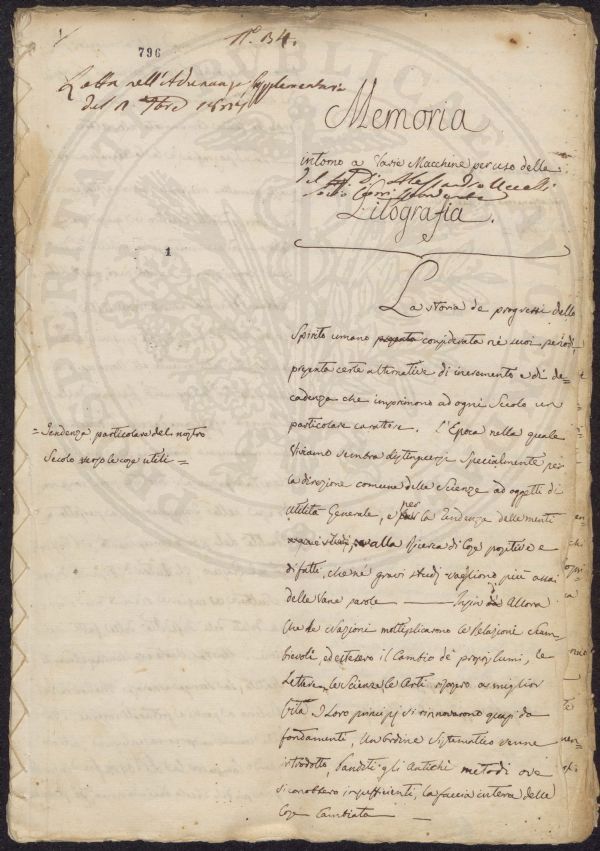 1
796
N.º 134.
Letta nell'Adunanza Supplementaria
del
Memoria
intorno a Varie Macchine per uso della
del Sig. Dr. Alessandro Uccelli
Socio Corrispondente
Litografia.
1
La storia de progressi dello
Spirito umano presenta considerata nè suoi periodi,
presenta certe alternative di incremento e di de-
cadenza che imprimono ad ogni Secolo un
particolare carattere. l'Epoca nella quale
Viviamo sembra distinguersi Specialmente per
la direzione comune delle Scienze ad oggetti di
utilità Generale, e per la Tendenza delle menti
alla Ricerca di Cose positive e
di fatti, che nè gravi studj vagliono più assai
delle Vane parole — Infin da Allora
Che le Nazioni moltiplicarono le Relazioni Scam-
bievoli, ed estesero il Cambio de proprj lumi, le
Lettere, le Scienze le Arti
I Loro principj si rinnovarono quasi da
fondamenti, Un Ordine Sistematico venne
introdotto, banditi gli Antichi metodi ove
si conobbero insufficienti, la faccia intera delle
Cose Cambiata —
= Tendenza particolare del nostro
Secolo verso le cose utili =